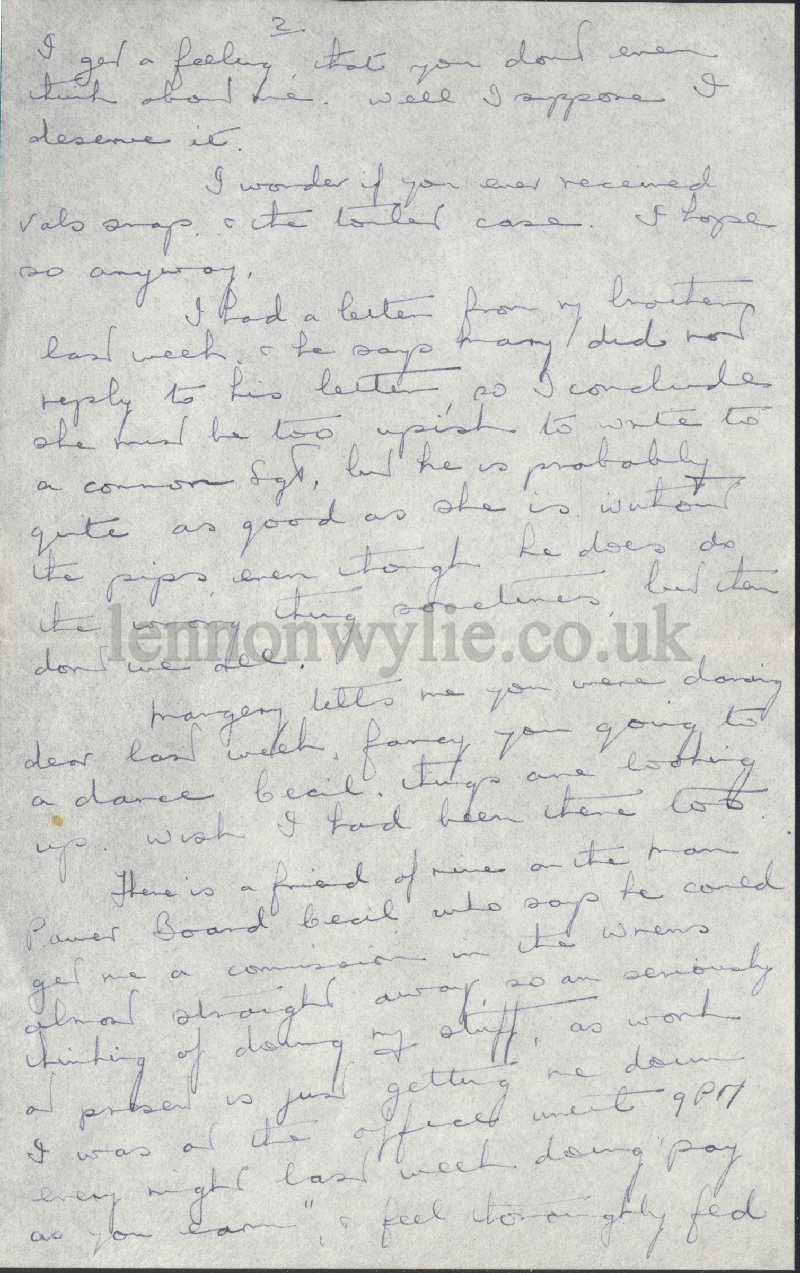 2
I get a feeling that you dont even
think about me. Well I suppose I
deserve it.
I wonder if you ever received
Vals snap, & the toilet case. I hope
so anyway.
I had a letter from my brother
last week, & he says Mary did not
reply to his letter, so I conclude
she must be too upish to write to
a common Sgt, but he is probably
quite as good as she is without
the pips, even though he does do
the wrong thing sometimes, but then
lennonwylie.co.uk
dont we all.
Margery tells me you were dancing
dear last week, fancy you going to
a dance Cecil. things are looking
up. wish I had been there too.
There is a friend of mine on the man
Power Board Cecil who says he could
get me a comission in the Wrens
almost straight away so am seriously
thinking of doing my stuff, as work
at present is just getting me down
I was at the office until 9PM
every night last week doing "pay
as you earn", & feel thoroughly fed